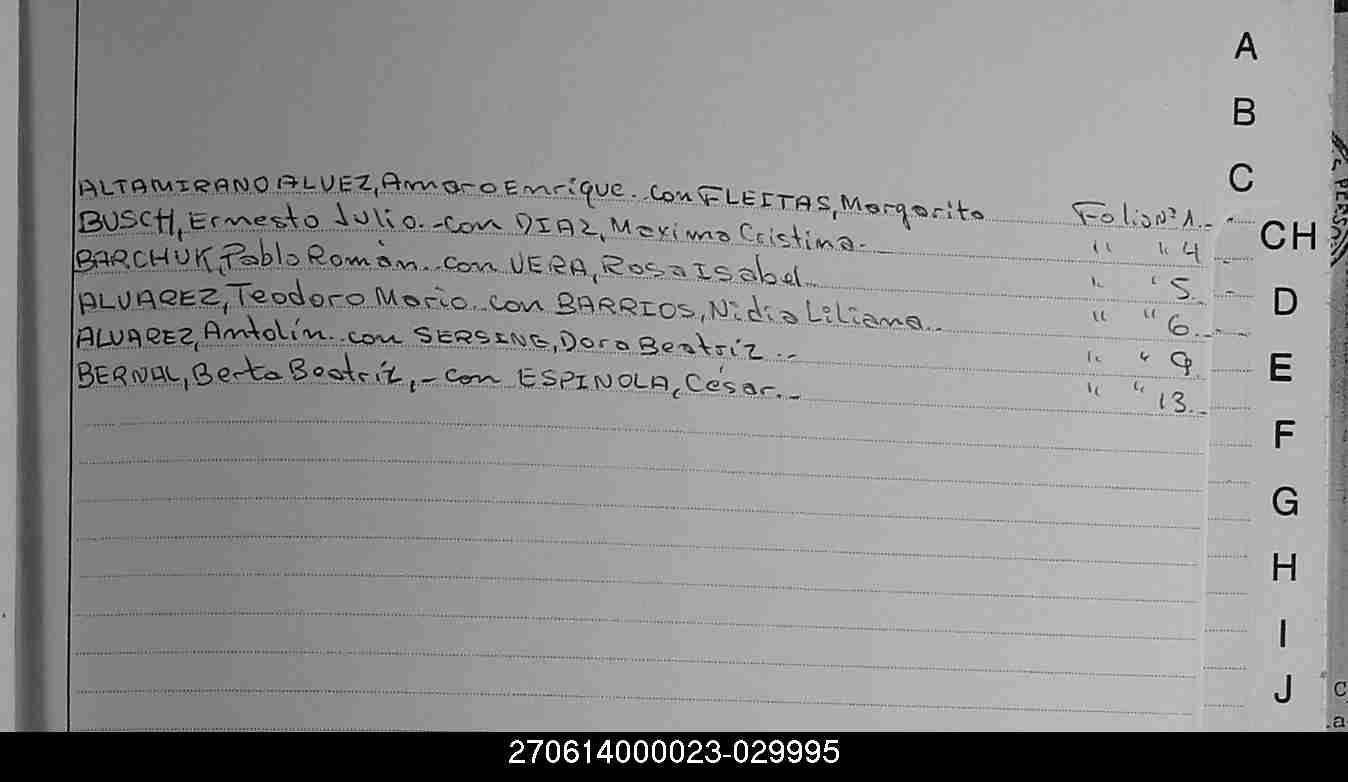 A
B
C
CH
D
E
F
G
H
I
J
ALTAMIRANO ALVEZ, Amaro Enrique. con FLEITAS, Margarita Folio Nº 1.-
BUSCH, Ernesto Julio.- con DIAZ, Maxima Cristina.- " " 4
BARCHUK, Pablo Román.. con VERA, Rosa Isabel.. " " 5.
ALVAREZ, Teodoro Mario.. con BARRIOS, Nidia Liliana.. " " 6..
ALVAREZ, Antolín.. con SERSING, Dora Beatriz.- " " 9.
BERNAL, Berta Beatriz,- con ESPINOLA, César..- " " 13.-
270614000023-029995